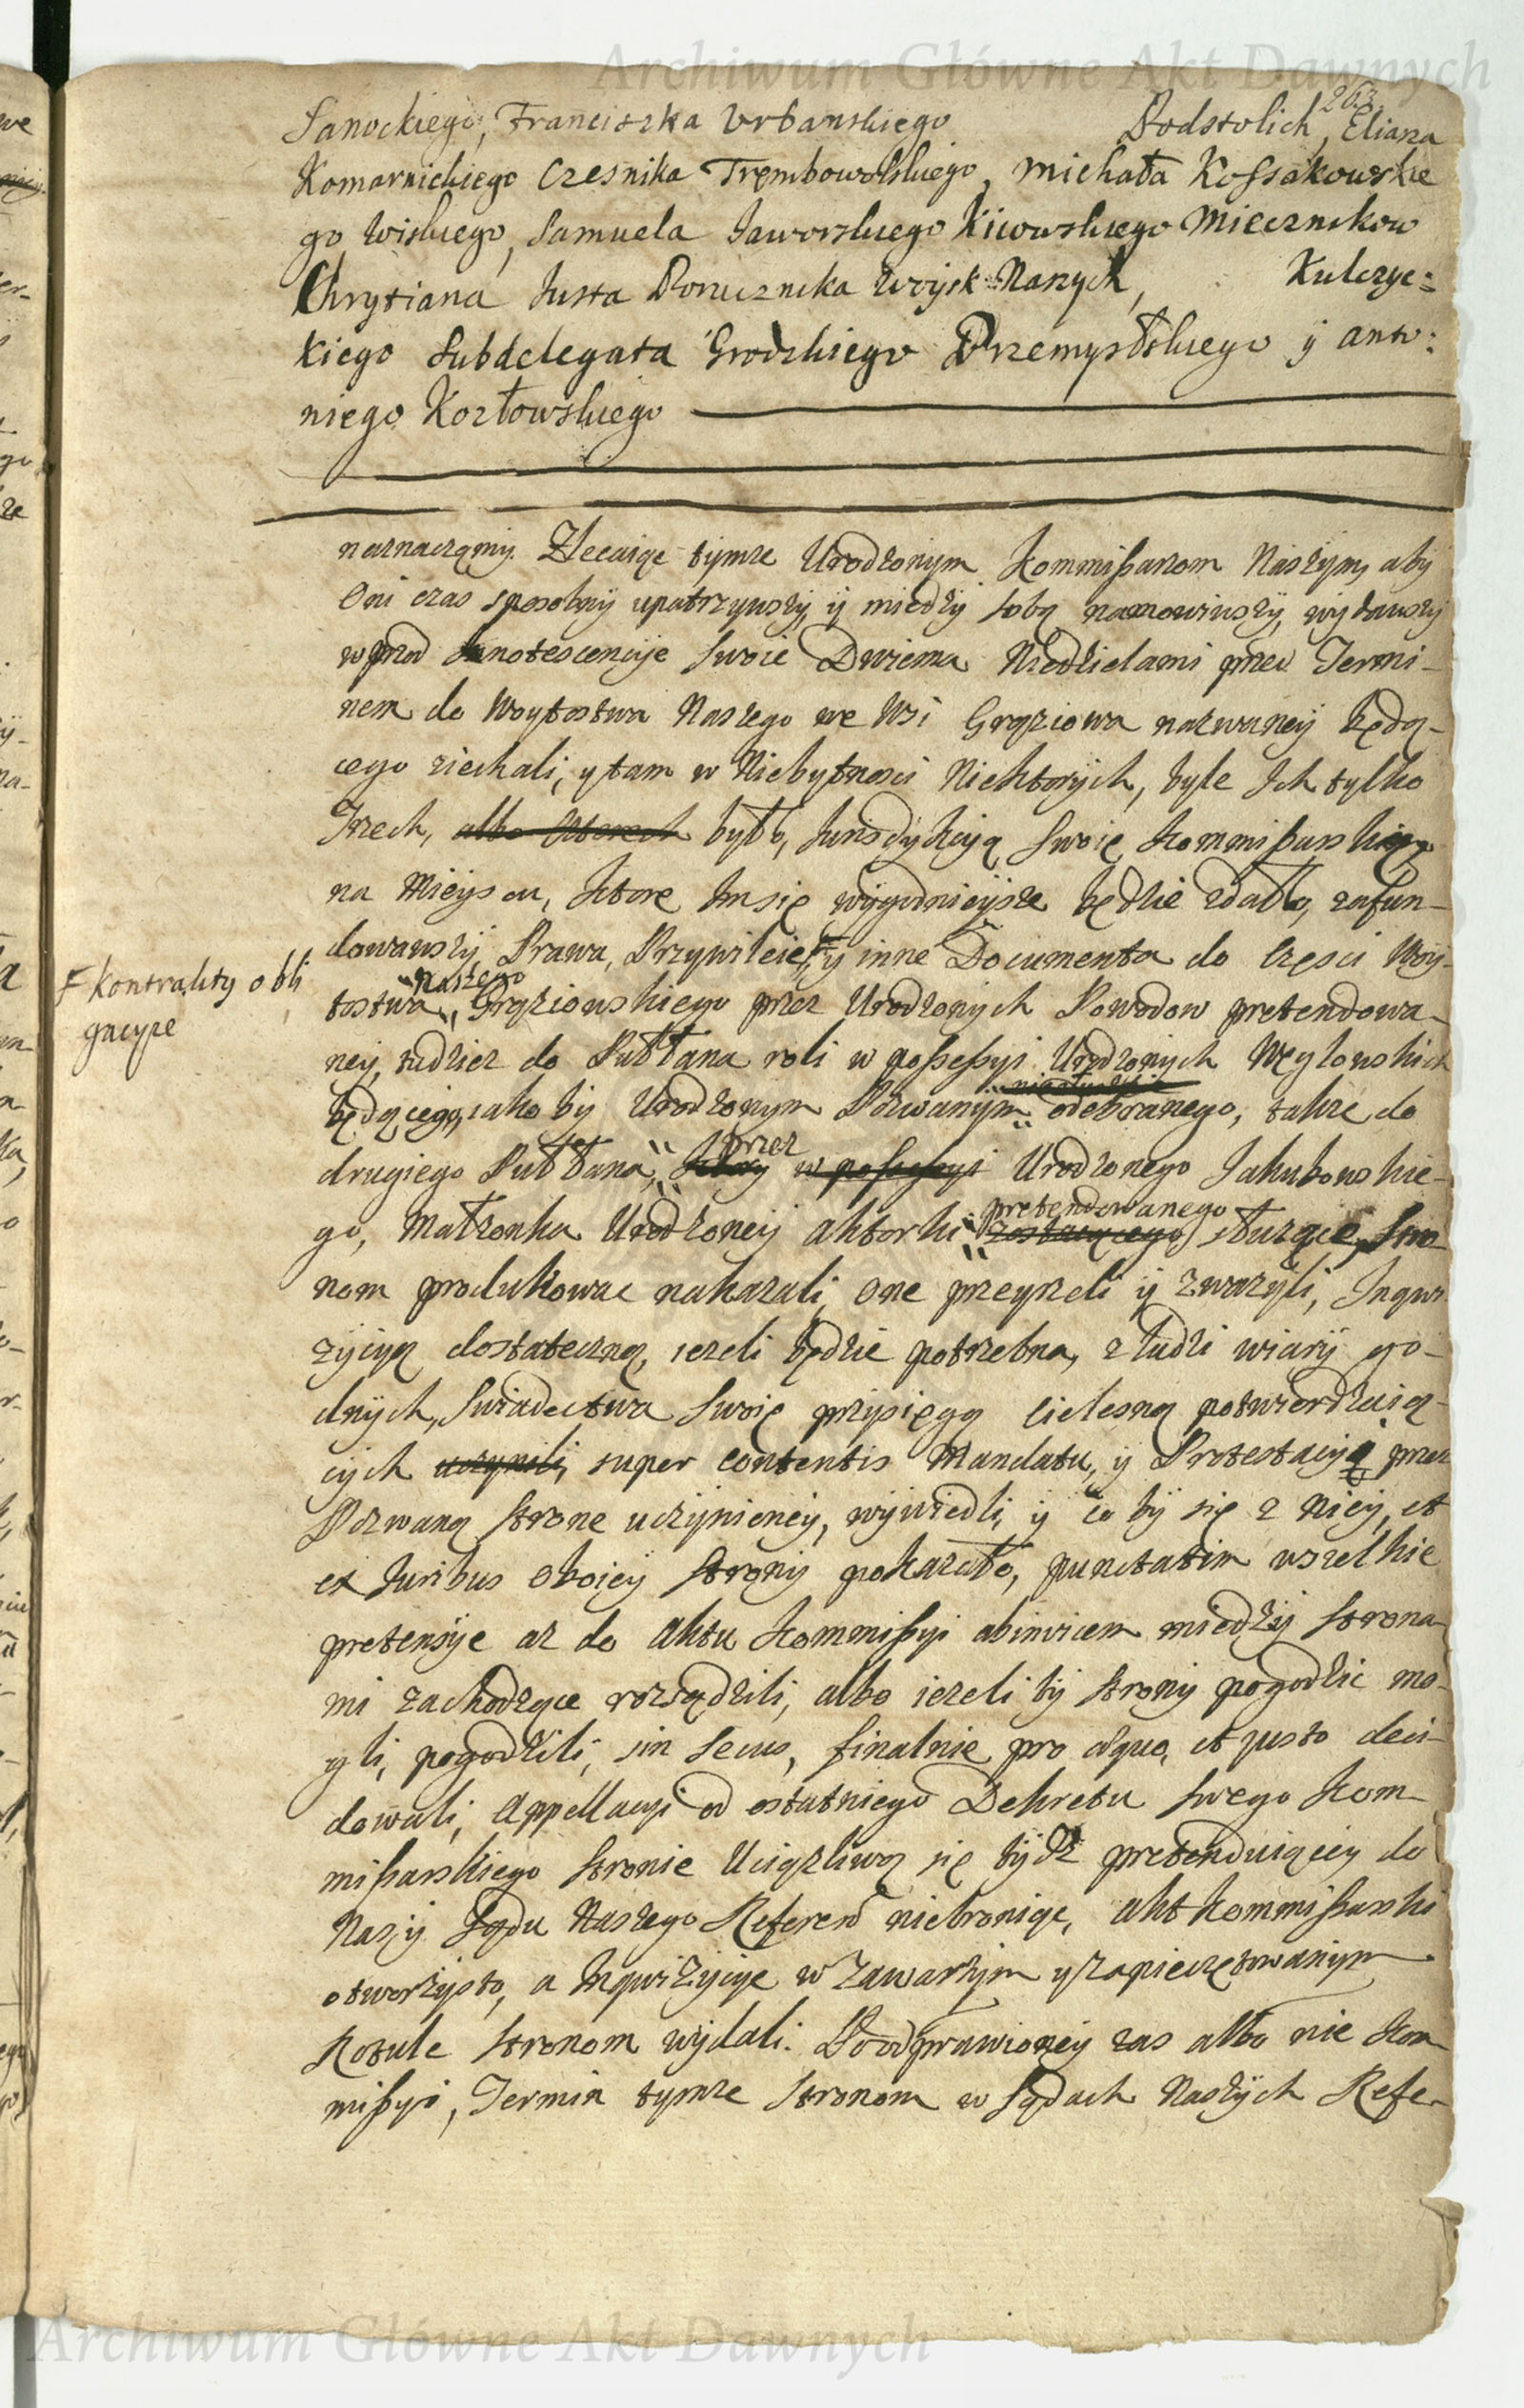 Archiwum Główne Akt Dawnych
263.
Sanockiego, Franciszka Urbanskiego Podstolich, Eliasza
Komarnickiego Czesnika Trembowolskiego, Michała Kossakowskie
go Wiskiego, Samuela Jaworskiego Kiiowskiego Miecznikow
Chrytiana Justa Porucznika Woysk Naszych, Kulczyc=
kiego Subdelegata Grodzkiego Przemysłskiego y Anto:
niego Kozłowskiego
naznaczamy. Zlecaiąc tymze Urodzonym Kommissarzom Naszym, aby
Oni czas sposobny upatrzywszy, y miedzy sobą namowiwszy, wydawszy
wprzod Innotescencyje swoie Dwiema Niedzielami przed Termi-
nem do Woytostwa Naszego we Wsi Grąziowa nazwaney będą-
cego ziechali, y tam w Niebytnosci Niektorych, byle Ich tylko
Trzech, albo czterech było, Jurisdykcyją swoię Kommissarską
na Mieyscu, ktore Im się wygodnieysze będzie zdało, zafun-
dowawszy, Prawa, Przywileie, # y inne Documenta do Częsci Woy-
# kontrakty obli
gacyie
Naszego
tostwa Grąziowskiego przez Urodzonych Powodow pretendowa-
ney, tudziez do Pułłana roli w possessyi Urodzonych Węglowskich
będącego, iakoby Urodzonym Pozwanym odebranego, takze do
przez
drugiego Pułłana, ktory w possessyi Urodzonego Jakubowskie-
pretendowanego
go, Małzonka Urodzoney Aktorki zostaiącego służące, Stro-
nom produkowac nakazali, one przeyrzeli y zwazyli, Inqwi-
zycyą dostateczną, iezeli będzie potrzebna, z ludzi wiary go-
dnych, swiadectwa swoie przysięgą cielesną potwierdzaią-
cych uczynili, super contentis Mandatu, y Protestacyą przez
Pozwaną strone uczynioney, wywiedli, y co by się z Niey, et
ex Juribus oboiey Strony pokazało, punctatim wszelkie
pretensyje az do Aktu Kommissyi abinvicem miedzy Strona-
mi zachodzące rozsądzili, albo iezeli by Strony pogodzic mo-
gli, pogodzili, sin secus, finalnie pro aequo, et justo deci-
dowali, Appellacyi od ostatniego Dekretu swego Kom-
missarskiego stronie Uciązliwą się bydz pretenduiącey do
Naszy Sądu Naszego Referen niebroniąc, Akt Kommissarski
otworzysto, a Inqwizycyje w Zawartym y zapieczętowanym
Rotule Stronom wydali. Po odprawioney zas albo nie Kom-
missyi, Termin tymze Stronom w Sądach Naszych Refe-
Archiwum Główne Akt Dawnych